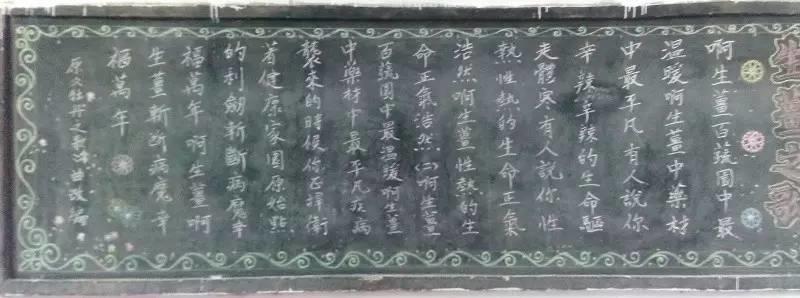 生薑之歌
啊生薑百蔬園中最
温暖啊生薑中藥材
中最平凡有人說你
辛辣辛辣的生命驅
走體寒有人說你性
熱性熱的生命正氣
浩然啊生薑性熱的生
命正氣浩然(二)啊生薑
百蔬園中最温暖啊生薑
中藥材中最平凡疾病
襲來的時候你正捍衛
着健康家園原始點
的利劍斬斷病魔幸
福萬年啊生薑啊
生薑斬斷病魔幸
福萬年
原牡丹之歌曲改編